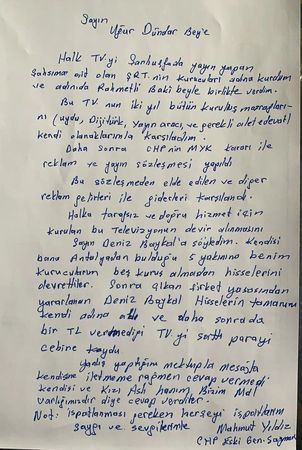 Sayın
Uğur Dündar Bey'e
Halk TV'yi Şanlıurfada yayın yapan
Şahsıma ait olan ŞRT.nin kurucuları adına kurdum
ve adınıda Rahmetli Baki beyle birlikte verdim.
Bu TV nun iki yıl bütün kuruluş masrafları-
nı (uydu, Dijitürk, Yayın aracı, ve gerekli alet edevatı
kendi olanaklarımla karşıladım.
Daha sonra CHP'nin MYK kararı ile
reklam ve yayın sözleşmesi yapıldı
Bu sözleşmeden elde edilen ve diğer
reklam gelirleri ile giderleri karşılandı.
Halka tarafsız ve doğru hizmet için
kurulan bu Televizyonun devir alınmasını
Sayın Deniz Baykal'a söyledim. Kendisi
bana Antalyadan bulduğu 5 yakınına benim
kurucuların beş kuruş almadan hisselerini
devrettiler. Sonra çıkan şirket yasasından
yararlanan Deniz Baykal Hisselerin tamamını
kendi adına aldı ve daha sonrada
bir TL vermediği TV'yi sattı parayı
cebine koydu
yanlış yaptığını mektupla mesajla
kendisine iletmeme rağmen cevap vermedi
kendisi ve Kızı Aslı hanım Bizim Mal
varlığımızdır diye cevap verdiler.
Not: ispatlanması gereken herşeyi ispatlarım
saygı ve sevgilerimle Mahmut Yıldız
CHP Eski Gen. Saymanı